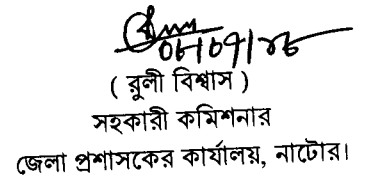 ( রুলী বিশ্বাস )
সহকারী কমিশনার
জেলা প্রশাসকের কার্যালয়, নাটোর।